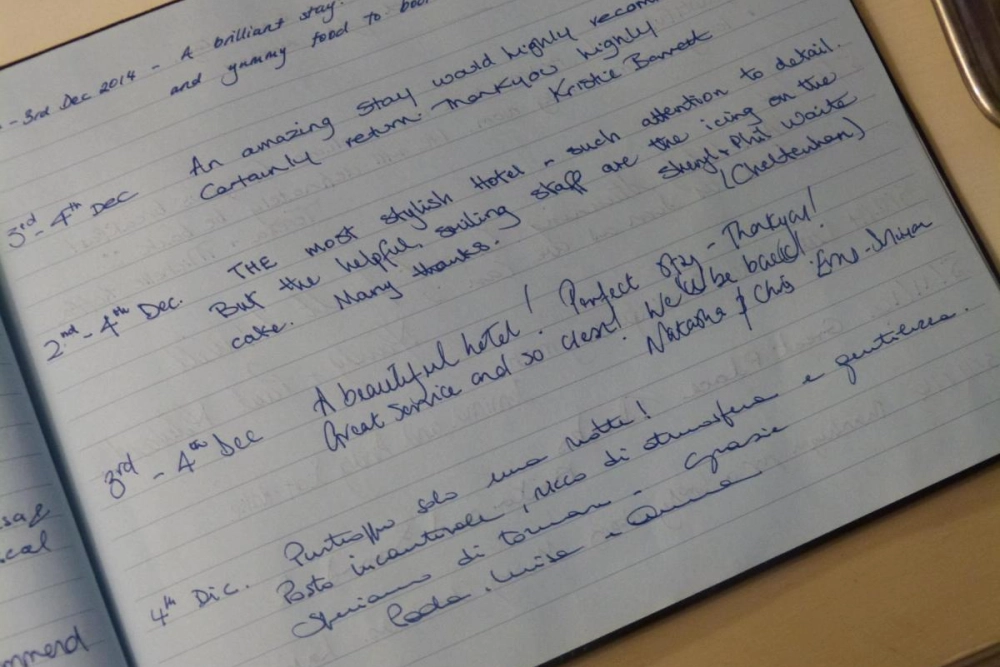 - 3rd Dec 2014 - A brilliant stay.
and yummy food to boot
3rd - 4th Dec An amazing stay would highly recom
Certainly return. Thankyou highly
Kristie Barrett
2nd - 4th Dec. THE most stylish Hotel - such attention to detail.
But the helpful, smiling staff are the icing on the
cake. Many thanks. Sheryl & Phil Waite
(Cheltenham)
3rd - 4th Dec A beautiful hotel! Perfect stay - Thankyou!
Great service and so clean! We'll be back!
Natasha & Chris
4th Dic. Purtroppo solo una notte!
Posto incantevole, ricco di atmosfera e gentilezza.
Speriamo di tornare - Grazie
Paola, Luisa e
sage
ical
mmend